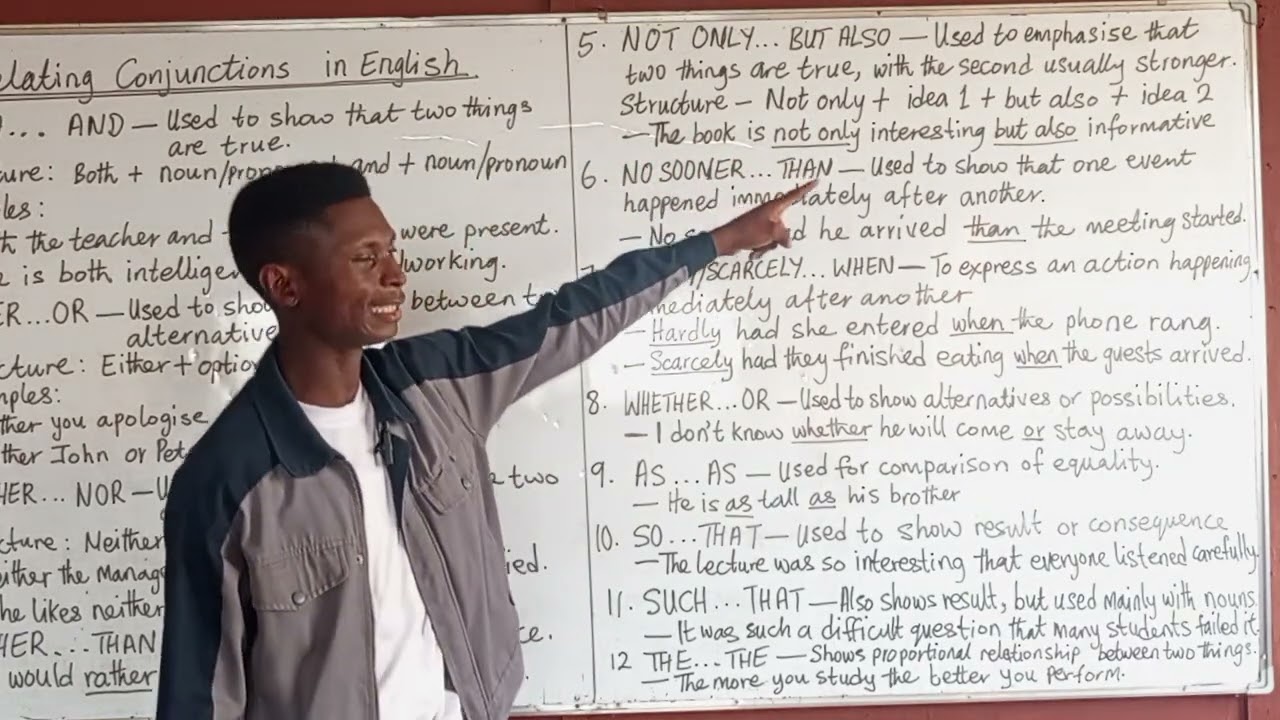 lating Conjunctions in English.
... AND — Used to show that two things
are true.
ure: Both + noun/pro and + noun/pronoun
les:
h the teacher and were present.
is both intellige working.
ER...OR — Used to sho between t
alternative
cture: Either + optio
mples:
ther you apologise
ther John or Pet
HER... NOR — U two
cture: Neither
ither the Manag ied.
he likes neither
HER...THAN ce.
would rather
5. NOT ONLY... BUT ALSO — Used to emphasise that
two things are true, with the second usually stronger.
Structure — Not only + idea 1 + but also + idea 2
— The book is not only interesting but also informative
6. NO SOONER... THAN — Used to show that one event
happened immediately after another.
— No d he arrived than the meeting started.
/SCARCELY... WHEN — To express an action happening
mediately after another
— Hardly had she entered when the phone rang.
— Scarcely had they finished eating when the guests arrived.
8. WHETHER...OR — Used to show alternatives or possibilities.
— I don't know whether he will come or stay away.
9. AS... AS — Used for comparison of equality.
— He is as tall as his brother
10. SO...THAT — Used to show result or consequence
— The lecture was so interesting that everyone listened carefully.
11. SUCH...THAT — Also shows result, but used mainly with nouns.
— It was such a difficult question that many students failed it.
12 THE...THE — Shows proportional relationship between two things.
— The more you study the better you perform.